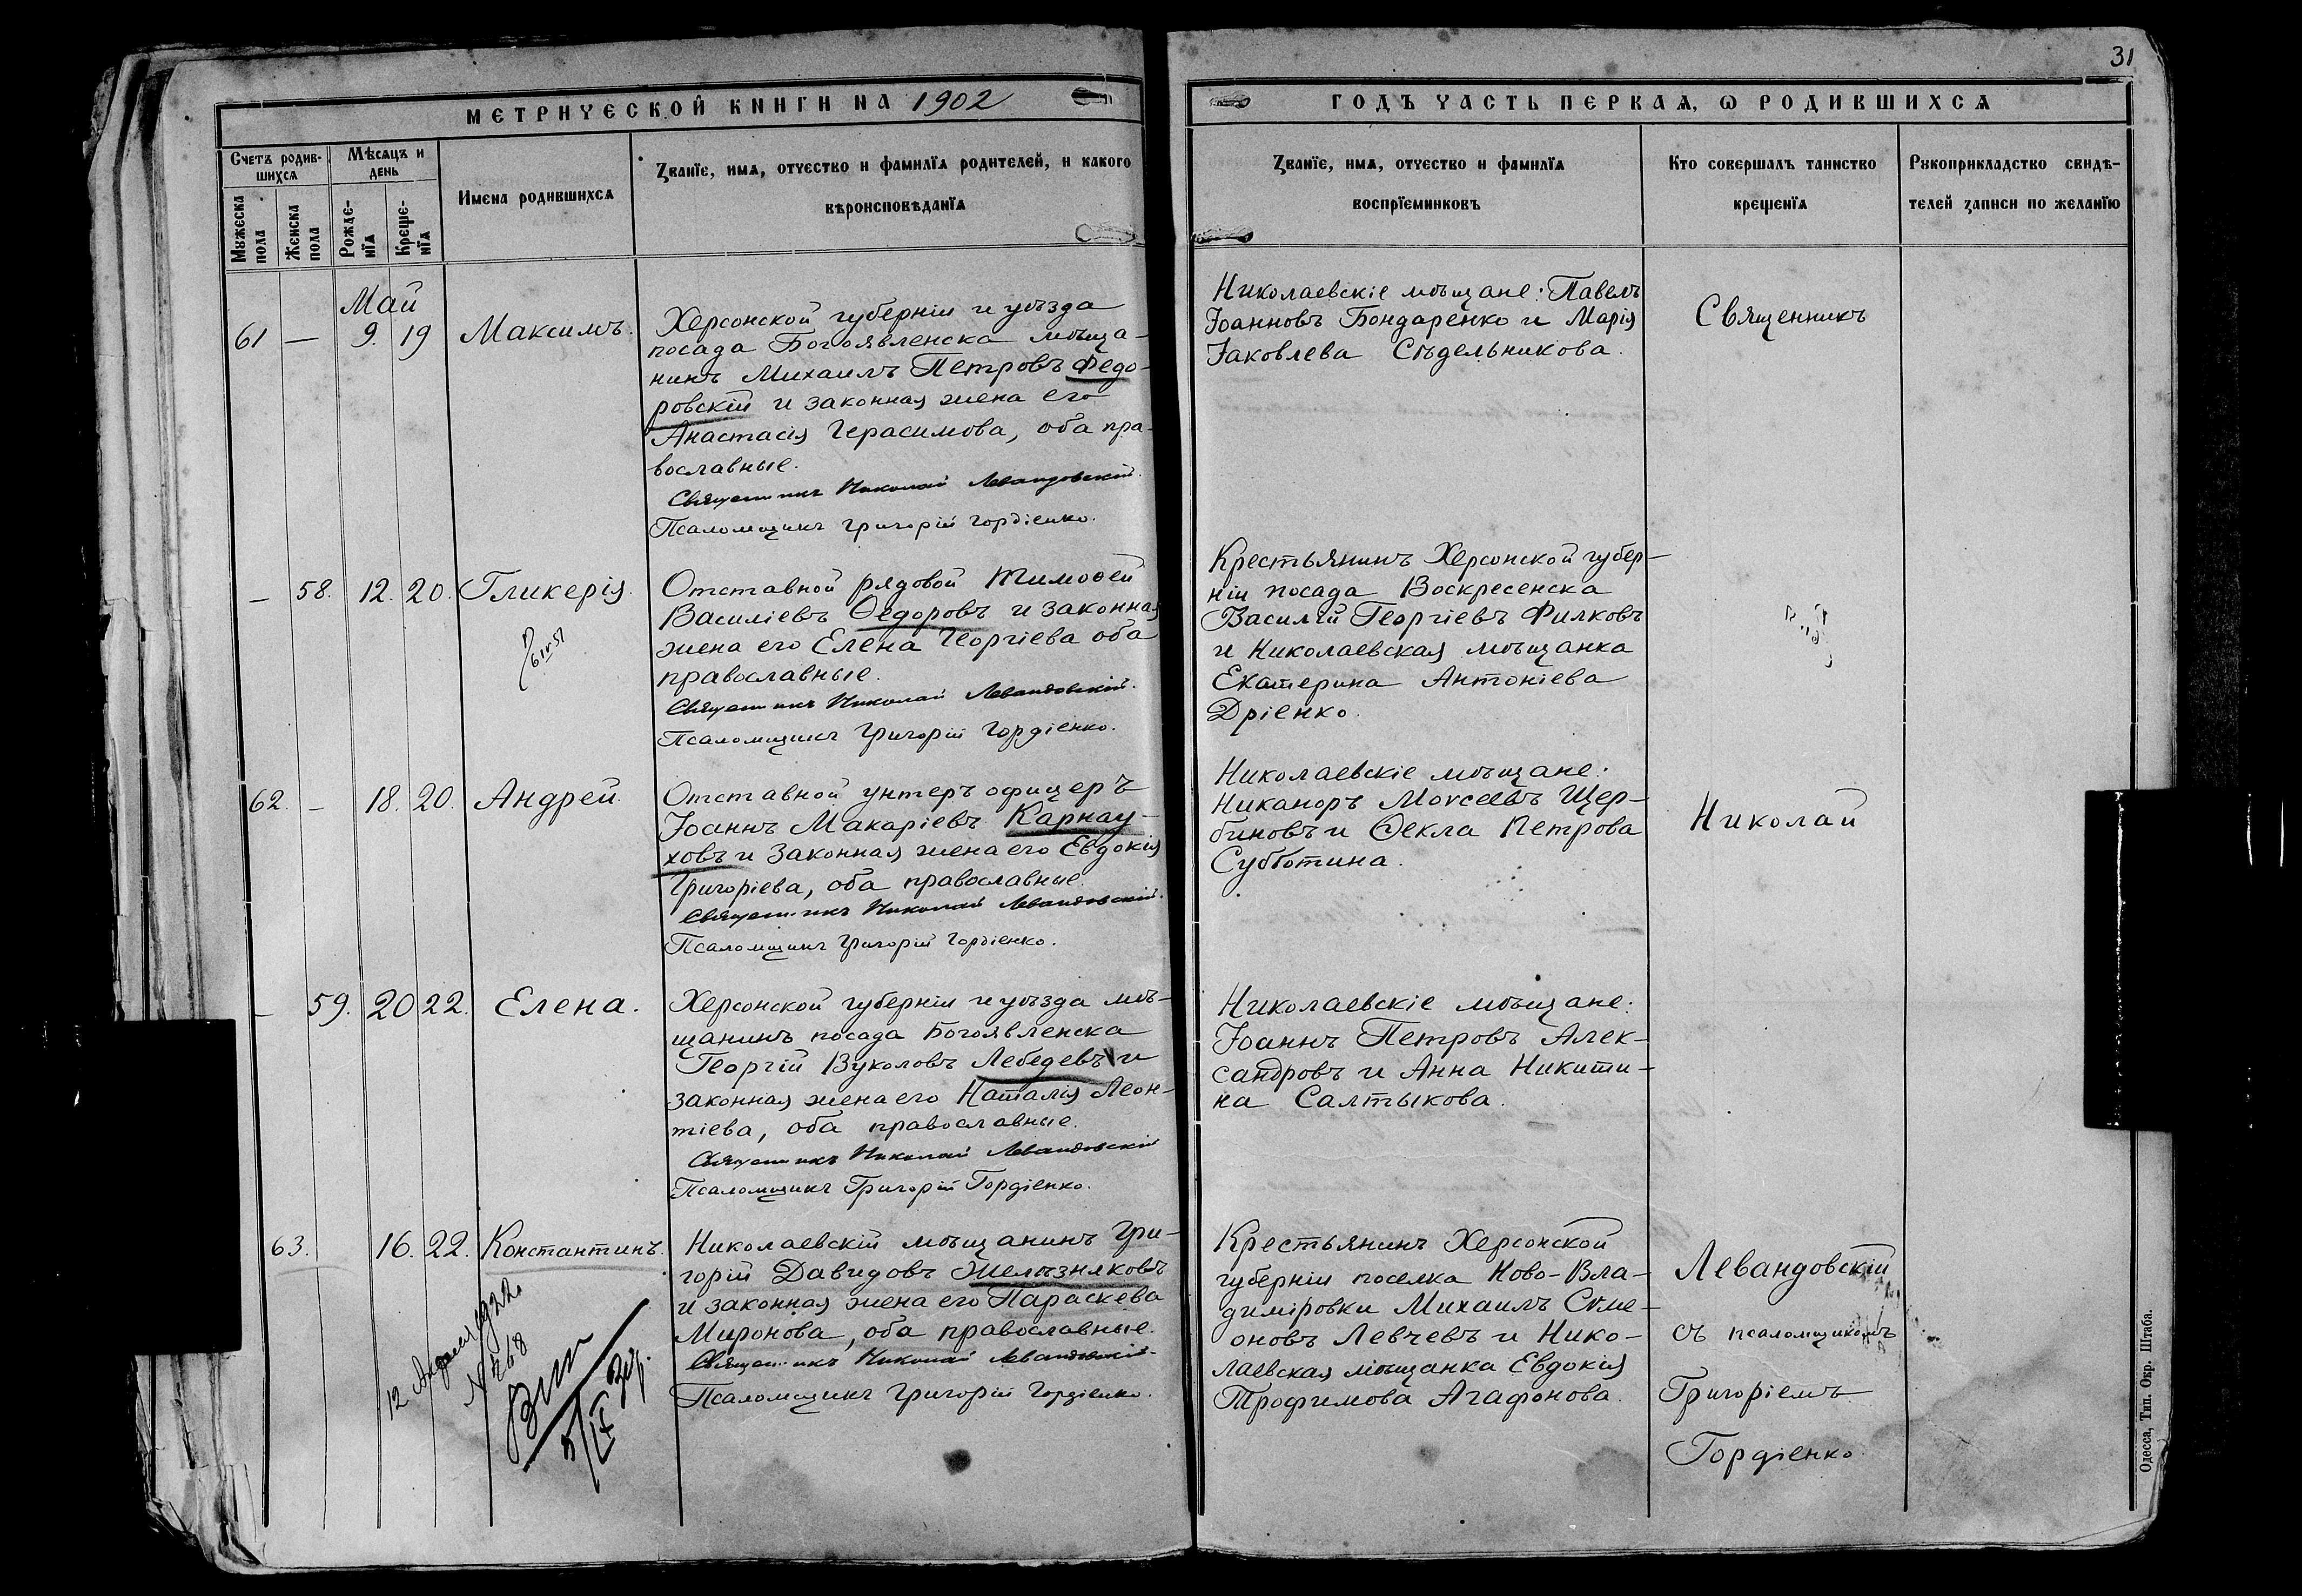 31
МЕТРИЧЕСКОЙ КНИГИ НА 1902
ГОДЪ ЧАСТЬ ПЕРВАЯ, Ѡ РОДИВШИХСЯ
Счетъ родив-
шихся
Мѣсяцъ и
день
Мужеска
пола
Женска
пола
Рожде-
нїя
Креще-
нїя
Имена родившихся
Званїе, имя, отчество и фамилїя родителей, и какого
вѣроисповѣданїя
Званїе, имя, отчество и фамилїя
воспрїемниковъ
Кто совершалъ таинство
крещенїя
Рукоприкладство свидѣ-
телей записи по желанїю
Май
61 — 9. 19 Максимъ.
Херсонской губерніи и уѣзда
посада Богоявленска мѣща-
нинъ Михаилъ Петровъ Федо-
ровскій и законная жена его
Анастасія Герасимова, оба пра-
вославные.
Священникъ Николай Левандовскій.
Псаломщикъ Григорій Гордіенко.
Николаевскіе мѣщане: Павелъ
Іоанновъ Бондаренко и Марія
Іаковлева Сѣдельникова.
Священникъ
— 58. 12. 20. Гликерія.
Отставной рядовой Тимофей
Василіевъ Ѳедоровъ и законная
жена его Елена Георгіева оба
православные.
Священникъ Николай Левандовскій.
Псаломщикъ Григорій Гордіенко.
Крестьянинъ Херсонской губер-
ніи посада Воскресенска
Василій Георгіевъ Филковъ
и Николаевская мѣщанка
Екатерина Антоніева
Дріенко.
62. — 18. 20. Андрей.
Отставной унтеръ офицеръ
Іоаннъ Макаріевъ Карнау-
ховъ и законная жена его Евдокія
Григоріева, оба православные.
Священникъ Николай Левандовскій.
Псаломщикъ Григорій Гордіенко.
Николаевскіе мѣщане:
Никаноръ Моѵсеевъ Щер-
биновъ и Ѳекла Петрова
Субботина.
Николай
— 59. 20 22. Елена.
Херсонской губерніи и уѣзда мѣ-
щанинъ посада Богоявленска
Георгій Вуколовъ Лебедевъ и
законная жена его Наталія Леон-
тіева, оба православные.
Священникъ Николай Левандовскій
Псаломщикъ Григорій Гордіенко.
Николаевскіе мѣщане:
Іоаннъ Петровъ Алек-
сандровъ и Анна Никити-
на Салтыкова.
63. 16. 22. Константинъ.
Николаевскій мѣщанинъ Гри-
горій Давидовъ Желѣзняковъ
и законная жена его Параскева
Миронова, оба православные.
Священникъ Николай Левандовскій
Псаломщикъ Григорій Гордіенко.
Крестьянинъ Херсонской
губерніи поселка Ново-Вла-
димировки Михаилъ Симе-
оновъ Левчевъ и Нико-
лаевская мѣщанка Евдокія
Трофимова Агафонова.
Левандовскій
съ псаломщикомъ
Григоріемъ
Гордіенко
12 Апреля 1922
Одесса, Тип. Окр. Штаба.